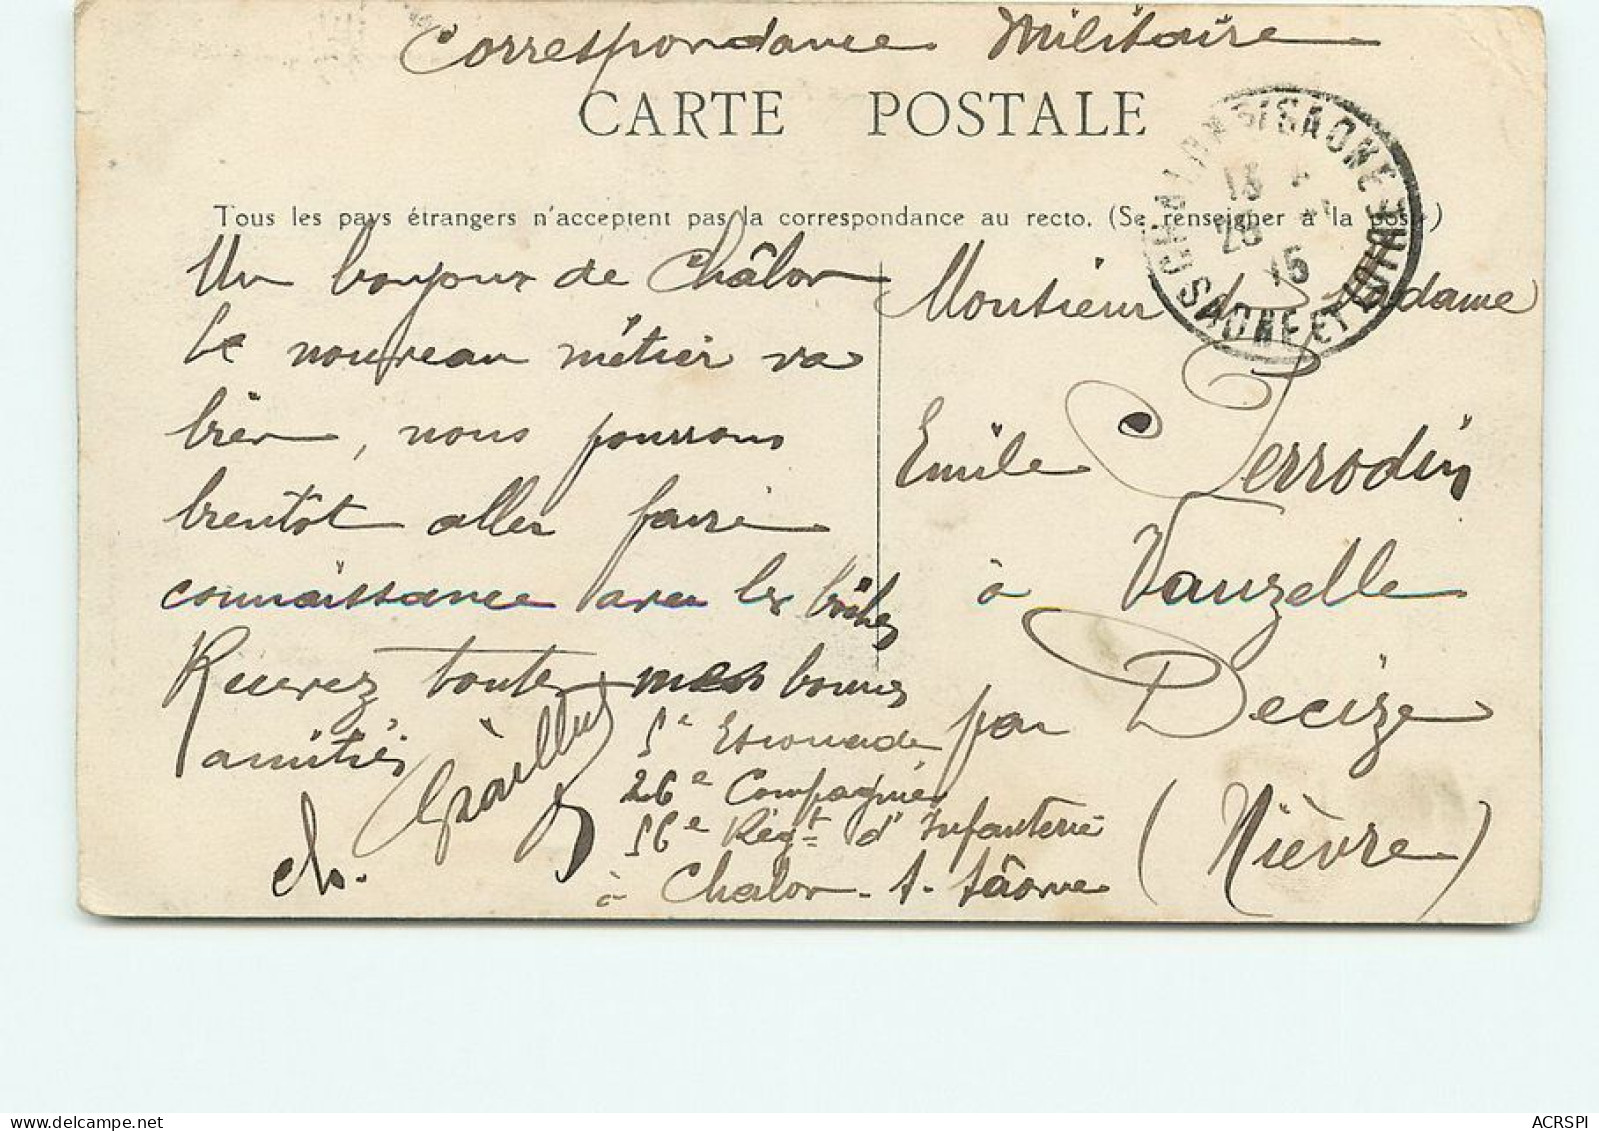 Correspondance Militaire
CARTE POSTALE
Tous les pays étrangers n'acceptent pas la correspondance au recto. (Se renseigner à la poste)
Un bonjour de Châlon
Le nouveau métier va
bien, nous pourrons
bientôt aller faire
connaissance avec les bôches
Recevez toutes mes bonnes
amitiés
ch.
5e Escouade
26e Compagnie
56e Régt d'Infanterie
à Chalon-s-Sâone
CHALON S/SAONE
15
28
15
SAONE ET LOIRE
Monsieur & Madame
Emile Perrodin
à Vauzelle
par Decize
(Nièvre)
ACRSPI